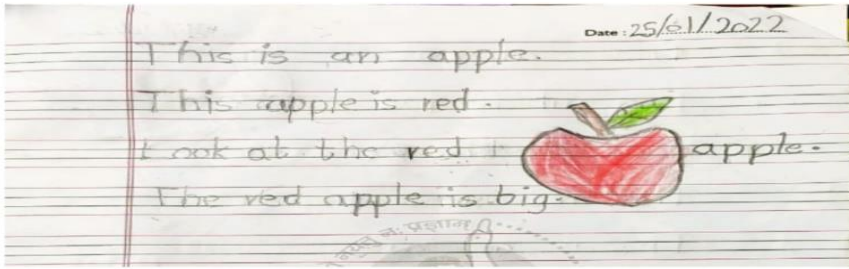 Date : 25/01/2022
This is an apple.
This apple is red.
Look at the red apple.
The red apple is big.